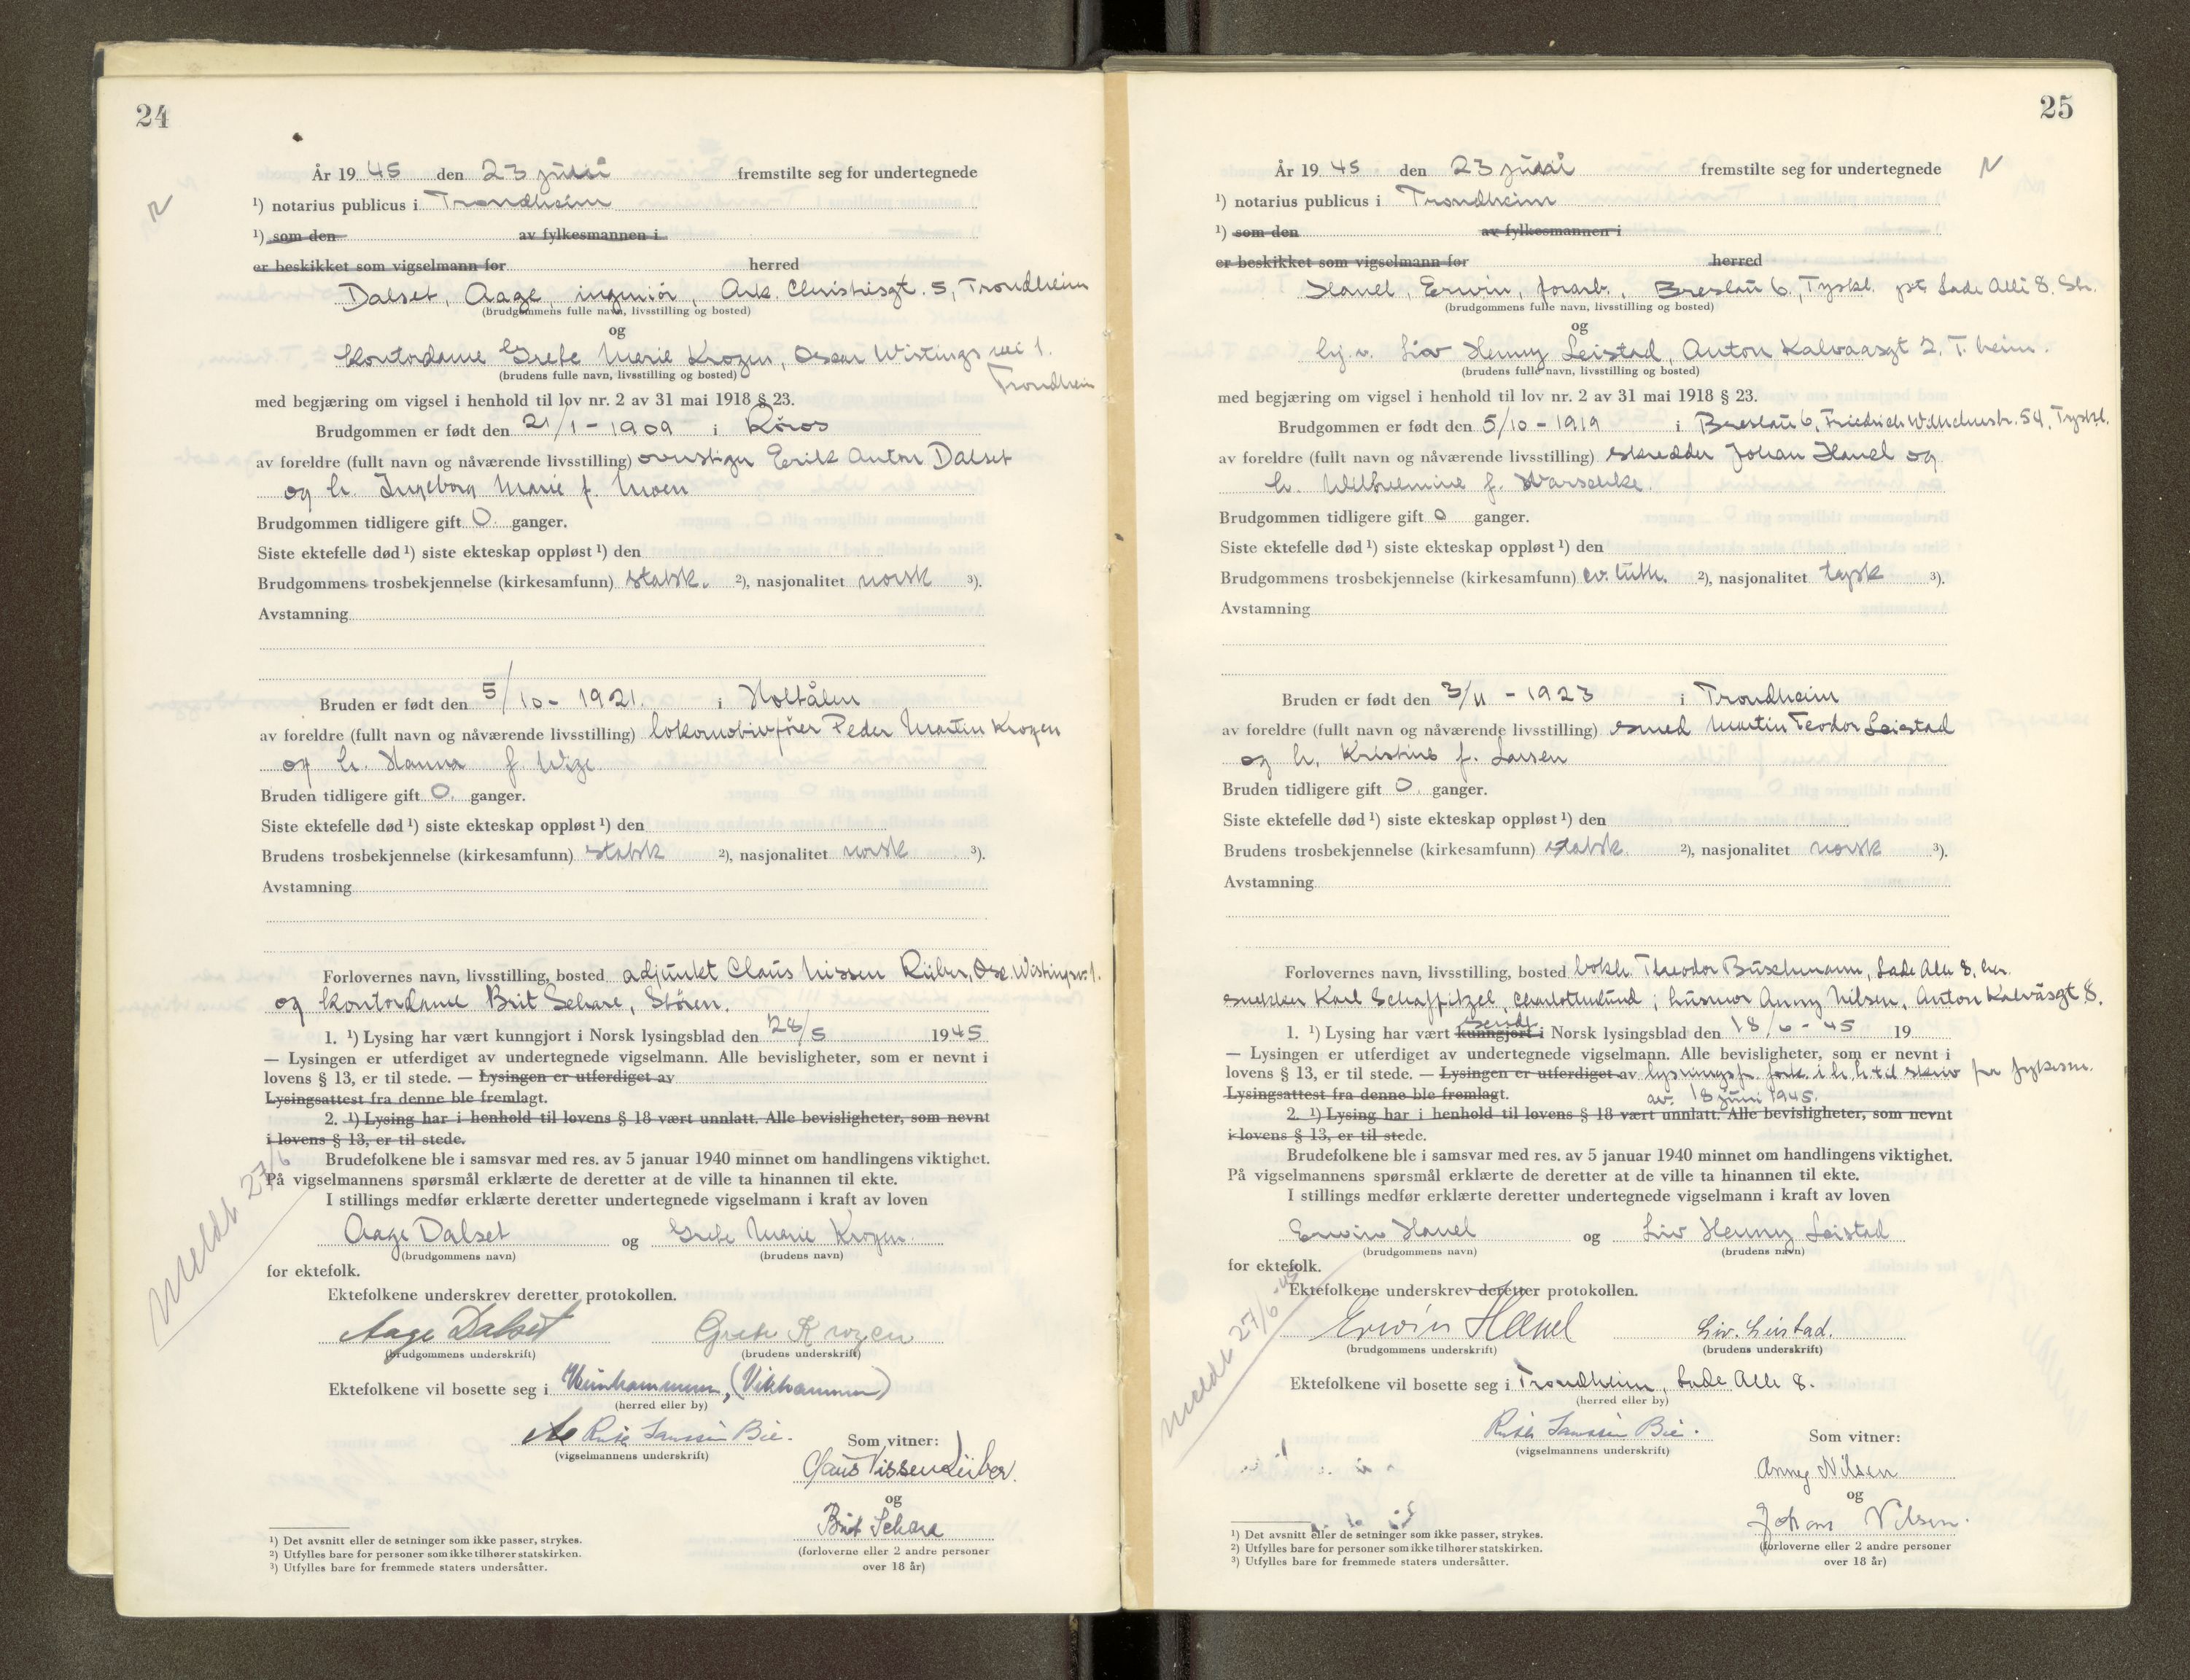 24
År 19 45 den 23 juni fremstilte seg for undertegnede
¹) notarius publicus i Trondheim
¹) som den av fylkesmannen i
er beskikket som vigselmann for herred
Dalset, Aage, ingeniør, Ark. Christiesgt. 5, Trondheim
(brudgommens fulle navn, livsstilling og bosted)
og
kontordame Grete Marie Krogen, Oscar Wistings vei 1.
Trondheim
(brudens fulle navn, livsstilling og bosted)
med begjæring om vigsel i henhold til lov nr. 2 av 31 mai 1918 § 23.
Brudgommen er født den 21/1 - 1909 i Röros
av foreldre (fullt navn og nåværende livsstilling) overstiger Erik Anton Dalset
og h. Ingeborg Marie f. Moen
Brudgommen tidligere gift 0. ganger.
Siste ektefelle død ¹) siste ekteskap oppløst ¹) den
Brudgommens trosbekjennelse (kirkesamfunn) statsk. ²), nasjonalitet norsk ³).
Avstamning
Bruden er født den 5/10 - 1921. i Holtålen
av foreldre (fullt navn og nåværende livsstilling) lokomotivfører Peder Martin Krogen
og h. Hanna f.
Bruden tidligere gift 0. ganger.
Siste ektefelle død ¹) siste ekteskap oppløst ¹) den
Brudens trosbekjennelse (kirkesamfunn) statsk ²), nasjonalitet norsk ³).
Avstamning
Forlovernes navn, livsstilling, bosted adjunkt Claus Nissen Riiber, Osc. Wistingsv. 1.
og kontordame Brit Schare, Støren.
1. ¹) Lysing har vært kunngjort i Norsk lysingsblad den 28/5 1945
— Lysingen er utferdiget av undertegnede vigselmann. Alle bevisligheter, som er nevnt i
lovens § 13, er til stede. — Lysingen er utferdiget av
Lysingsattest fra denne ble fremlagt.
2. ¹) Lysing har i henhold til lovens § 18 vært unnlatt. Alle bevisligheter, som nevnt
i lovens § 13, er til stede.
Brudefolkene ble i samsvar med res. av 5 januar 1940 minnet om handlingens viktighet.
På vigselmannens spørsmål erklærte de deretter at de ville ta hinannen til ekte.
I stillings medfør erklærte deretter undertegnede vigselmann i kraft av loven
Meldt 27/6
Aage Dalset og Grete Marie Krogen.
(brudgommens navn) (brudens navn)
for ektefolk.
Ektefolkene underskrev deretter protokollen.
Aage Dalset Grete Krogen
(brudgommens underskrift) (brudens underskrift)
Ektefolkene vil bosette seg i (Vikhammer)
(herred eller by)
(vigselmannens underskrift)
Som vitner:
Claus Nissen Riiber.
og
Brit Schare
(forloverne eller 2 andre personer
over 18 år)
¹) Det avsnitt eller de setninger som ikke passer, strykes.
²) Utfylles bare for personer som ikke tilhører statskirken.
³) Utfylles bare for fremmede staters undersåtter.
25
År 19 45 den 23 juni fremstilte seg for undertegnede
¹) notarius publicus i Trondheim
¹) som den av fylkesmannen i
er beskikket som vigselmann for herred
Hanel, Erwin, forarb., Breslau 6, Tyskl. pt. Lade Allé 8. Str.
(brudgommens fulle navn, livsstilling og bosted)
og
hj.v. Liv Henny Leistad, Anton Kalvaasgt 2. T.heim.
(brudens fulle navn, livsstilling og bosted)
med begjæring om vigsel i henhold til lov nr. 2 av 31 mai 1918 § 23.
Brudgommen er født den 5/10 - 1919 i Breslau 6, Friedrich Wilhelmstr. 54, Tyskl.
av foreldre (fullt navn og nåværende livsstilling) skredder Johan Hanel og
h. Wilhelmine f. Warschke.
Brudgommen tidligere gift 0 ganger.
Siste ektefelle død ¹) siste ekteskap oppløst ¹) den
Brudgommens trosbekjennelse (kirkesamfunn) ev. luth. ²), nasjonalitet tysk ³).
Avstamning
Bruden er født den 3/11 - 1923 i Trondheim
av foreldre (fullt navn og nåværende livsstilling) smed Martin Teodor Leistad
og h. Kristine f. Larsen
Bruden tidligere gift 0. ganger.
Siste ektefelle død ¹) siste ekteskap oppløst ¹) den
Brudens trosbekjennelse (kirkesamfunn) statsk. ²), nasjonalitet norsk ³).
Avstamning
Forlovernes navn, livsstilling, bosted bokh. Theodor Buschmann, Lade Allé 8, her.
snekker Karl Schaffitzel, Charlottenlund; husmor Anny Nilsen, Anton Kalvåsgt 8.
1. ¹) Lysing har vært kunngjort sendt i Norsk lysingsblad den 18/6 - 45 19
— Lysingen er utferdiget av undertegnede vigselmann. Alle bevisligheter, som er nevnt i
lovens § 13, er til stede. — Lysingen er utferdiget av lysningsfr. fork. i h.h. til skriv fra fylkesm.
Lysingsattest fra denne ble fremlagt. av. 18 juni 1945.
2. ¹) Lysing har i henhold til lovens § 18 vært unnlatt. Alle bevisligheter, som nevnt
i lovens § 13, er til stede.
Brudefolkene ble i samsvar med res. av 5 januar 1940 minnet om handlingens viktighet.
På vigselmannens spørsmål erklærte de deretter at de ville ta hinannen til ekte.
I stillings medfør erklærte deretter undertegnede vigselmann i kraft av loven
Erwin Hanel og Liv Henny Leistad
(brudgommens navn) (brudens navn)
for ektefolk.
Meldt 27/6-45
Ektefolkene underskrev deretter protokollen.
Erwin Hanel Liv. Leistad.
(brudgommens underskrift) (brudens underskrift)
Ektefolkene vil bosette seg i Trondheim, Lade Allé 8.
(herred eller by)
(vigselmannens underskrift)
Som vitner:
Anny Nilsen
og
Johan Nilsen.
(forloverne eller 2 andre personer
over 18 år)
¹) Det avsnitt eller de setninger som ikke passer, strykes.
²) Utfylles bare for personer som ikke tilhører statskirken.
³) Utfylles bare for fremmede staters undersåtter.